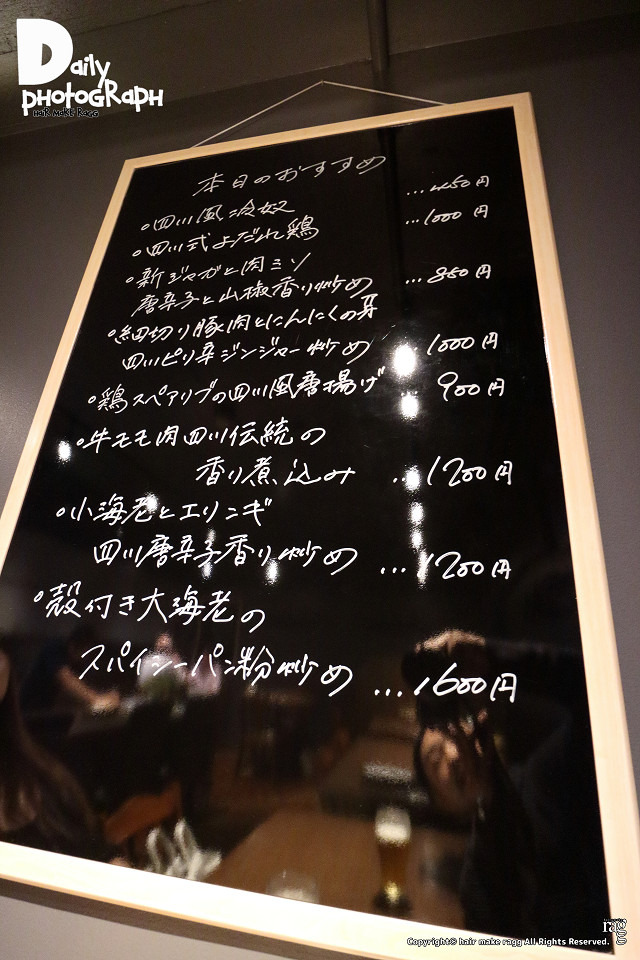 Daily
PHOTOGRAPH
HAIR MAKE RAGG
本日のおすすめ
・四川風冷奴 ...450円
・四川式よだれ鶏 ...1000円
・新ジャガと肉ミソ
唐辛子と山椒香り炒め ...850円
・細切り豚肉とにんにくの芽
四川ピリ辛ジンジャー炒め 1000円
・鶏スペアリブの四川風唐揚げ 900円
・牛モモ肉四川伝統の
香り煮込み ...1200円
・小海老とエリンギ
四川唐辛子香り炒め ...1200円
・殻付き大海老の
スパイシーパン粉炒め ...1600円
ragg
Copyright© hair make ragg All Rights Reserved.